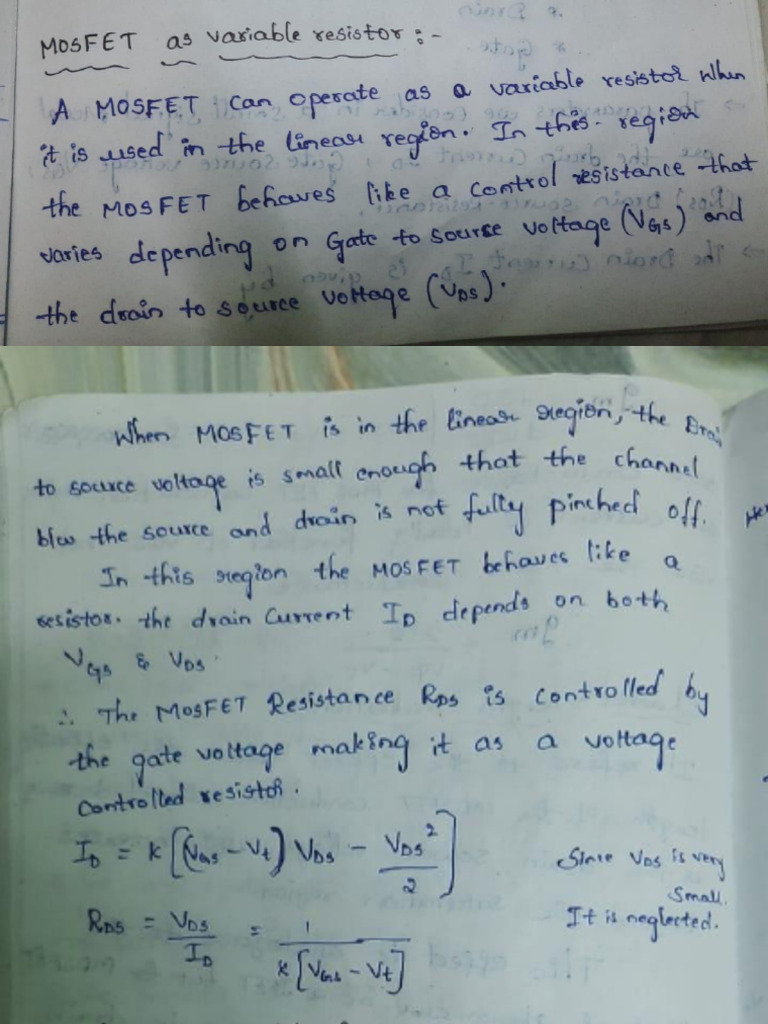 MOSFET as variable resistor :-
A MOSFET can operate as a variable resistor when
it is used in the linear region. In this region
the MOSFET behaves like a control resistance that
varies depending on Gate to sourse voltage (VGS) and
the drain to source voltage (VDS).
When MOSFET is in the linear region, the Drai
to source voltage is small enough that the channel
b/w the source and drain is not fully pinched off.
In this region the MOSFET behaves like a
resistor. the drain Current ID depends on both
VGS & VDS.
∴ The MOSFET Resistance RDS is controlled by
the gate voltage making it as a voltage
controlled resistor.
ID = K[(VGS - Vt) VDS - VDS²/2]
Since VDS is very
small.
It is neglected.
RDS = VDS/ID = 1/K[VGS - Vt]